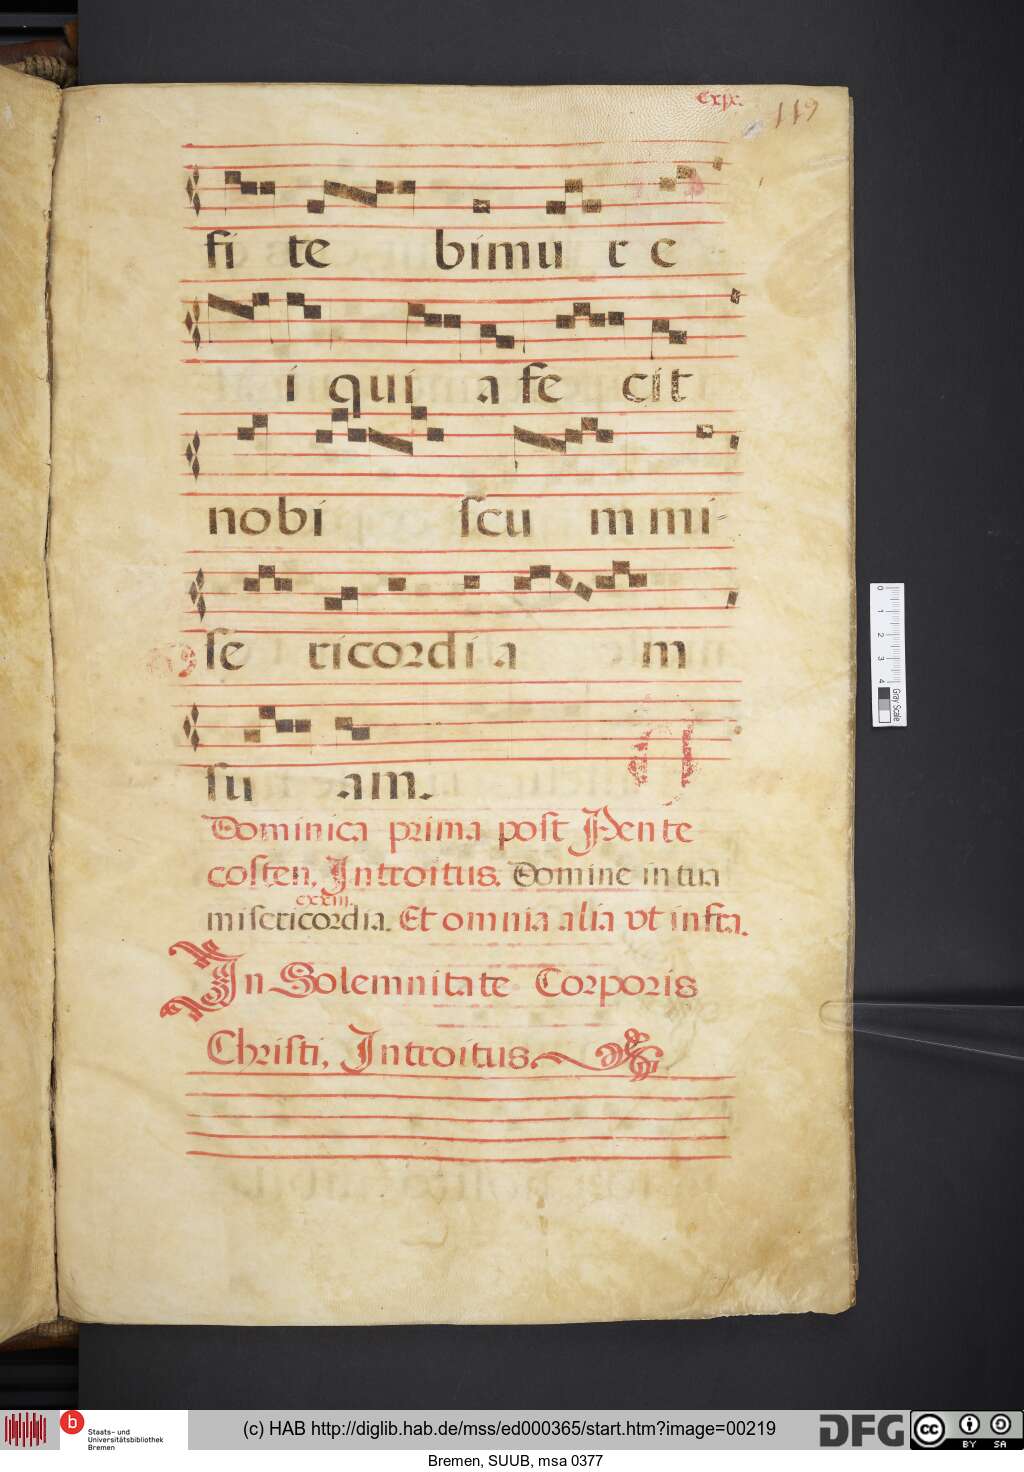 cxix.
119
fi te bimu r e
i qui a fe cit
nobi scu m mi-
se ricordi a m
su am.
Dominica prima post Pente
costen. Introitus. Domine in tua
cxxiii.
misericordia. Et omnia alia vt infra.
In Solemnitate Corporis
Christi, Introitus.
0 1 2 3 4 Gray Scale
b
Staats- und
Universitätsbibliothek
Bremen
(c) HAB http://diglib.hab.de/mss/ed000365/start.htm?image=00219
DFG
cc BY SA
Bremen, SUUB, msa 0377